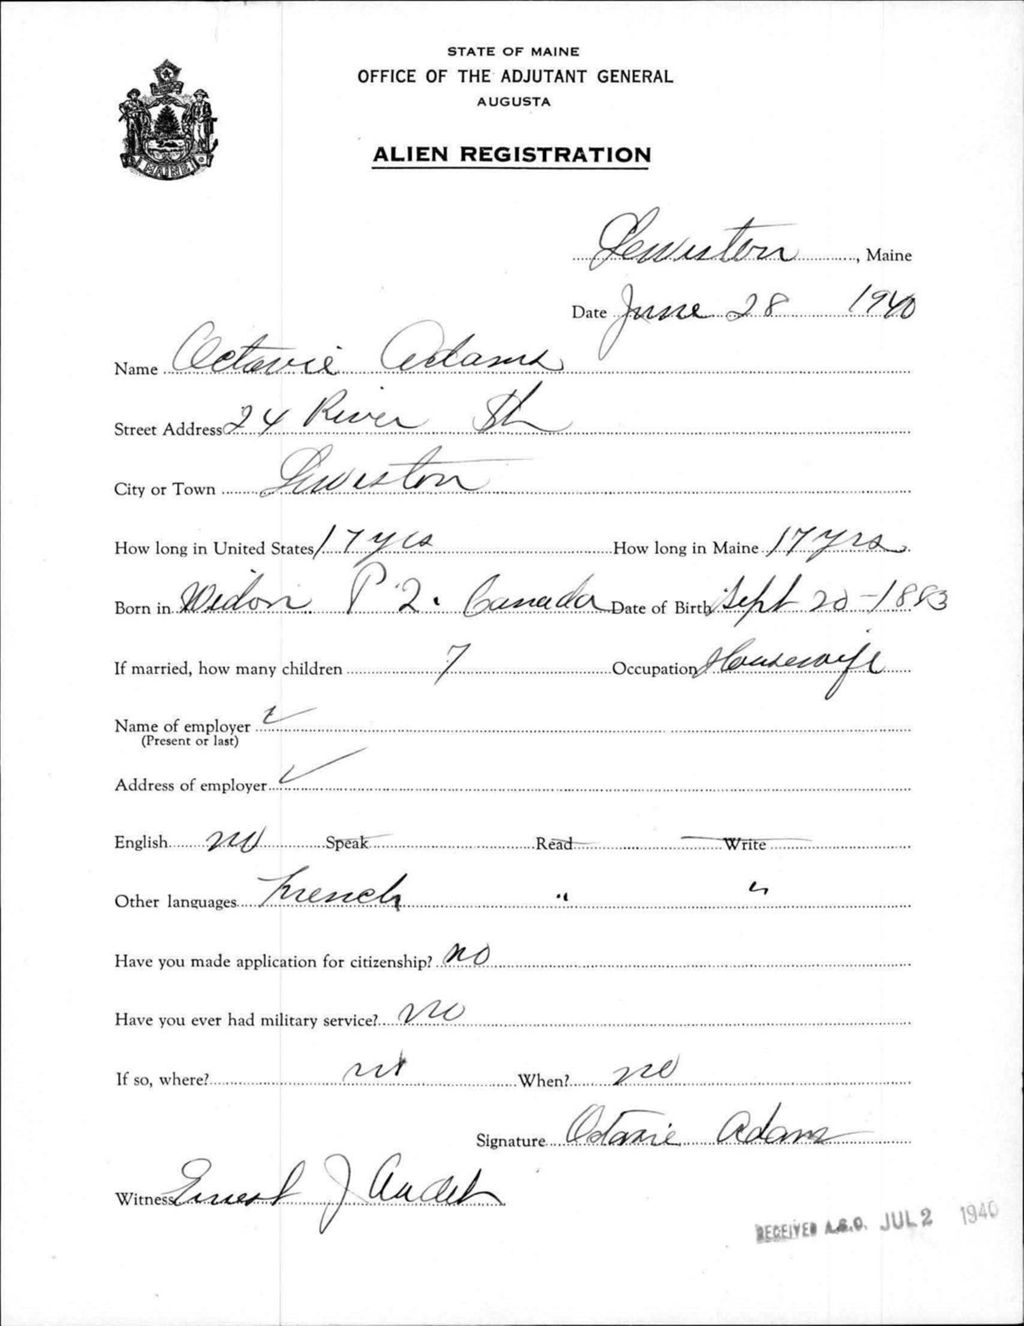 STATE OF MAINE
OFFICE OF THE ADJUTANT GENERAL
AUGUSTA
ALIEN REGISTRATION
MAINE
Lewiston, Maine
Date June 28 1940
Name Octavie Adams
Street Address 24 River St
City or Town Lewiston
How long in United States 17 yrs How long in Maine 17 yrs
Born in P.Q. Canada Date of Birth Sept 20-1883
If married, how many children 7 Occupation Housewife
Name of employer ✓
(Present or last)
Address of employer ✓
English no Speak Read Write
Other languages French " "
Have you made application for citizenship? no
Have you ever had military service? no
If so, where? no When? no
Signature Octavie Adams
Witness Ernest J Audet
RECEIVED A.G.O. JUL 2 1940